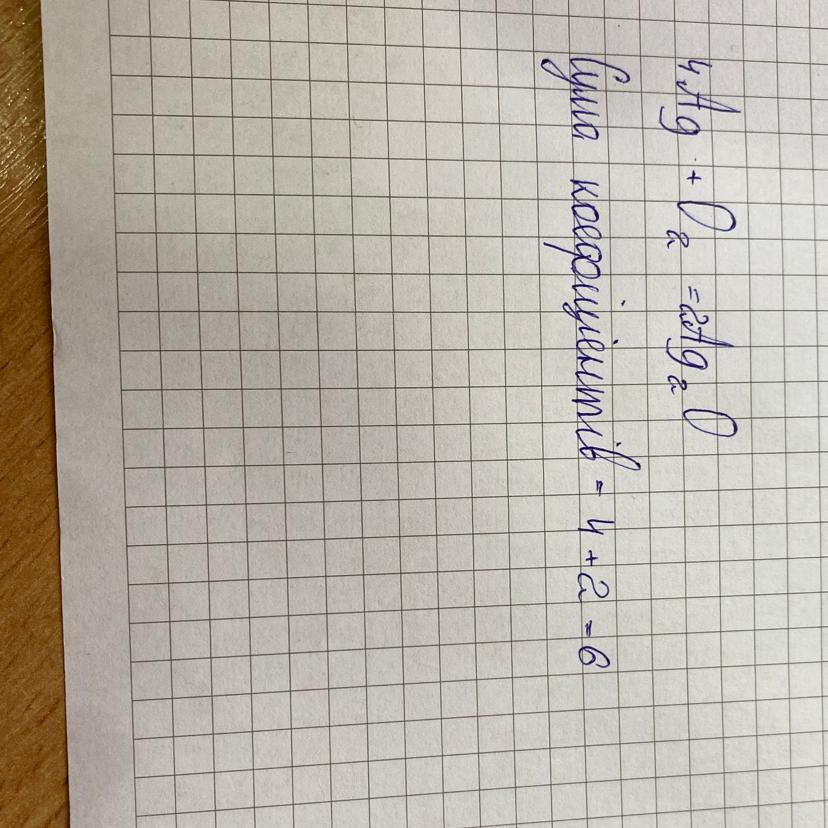 4Ag + O₂ = 2Ag₂O
Сума коефіцієнтів = 4 + 2 = 6